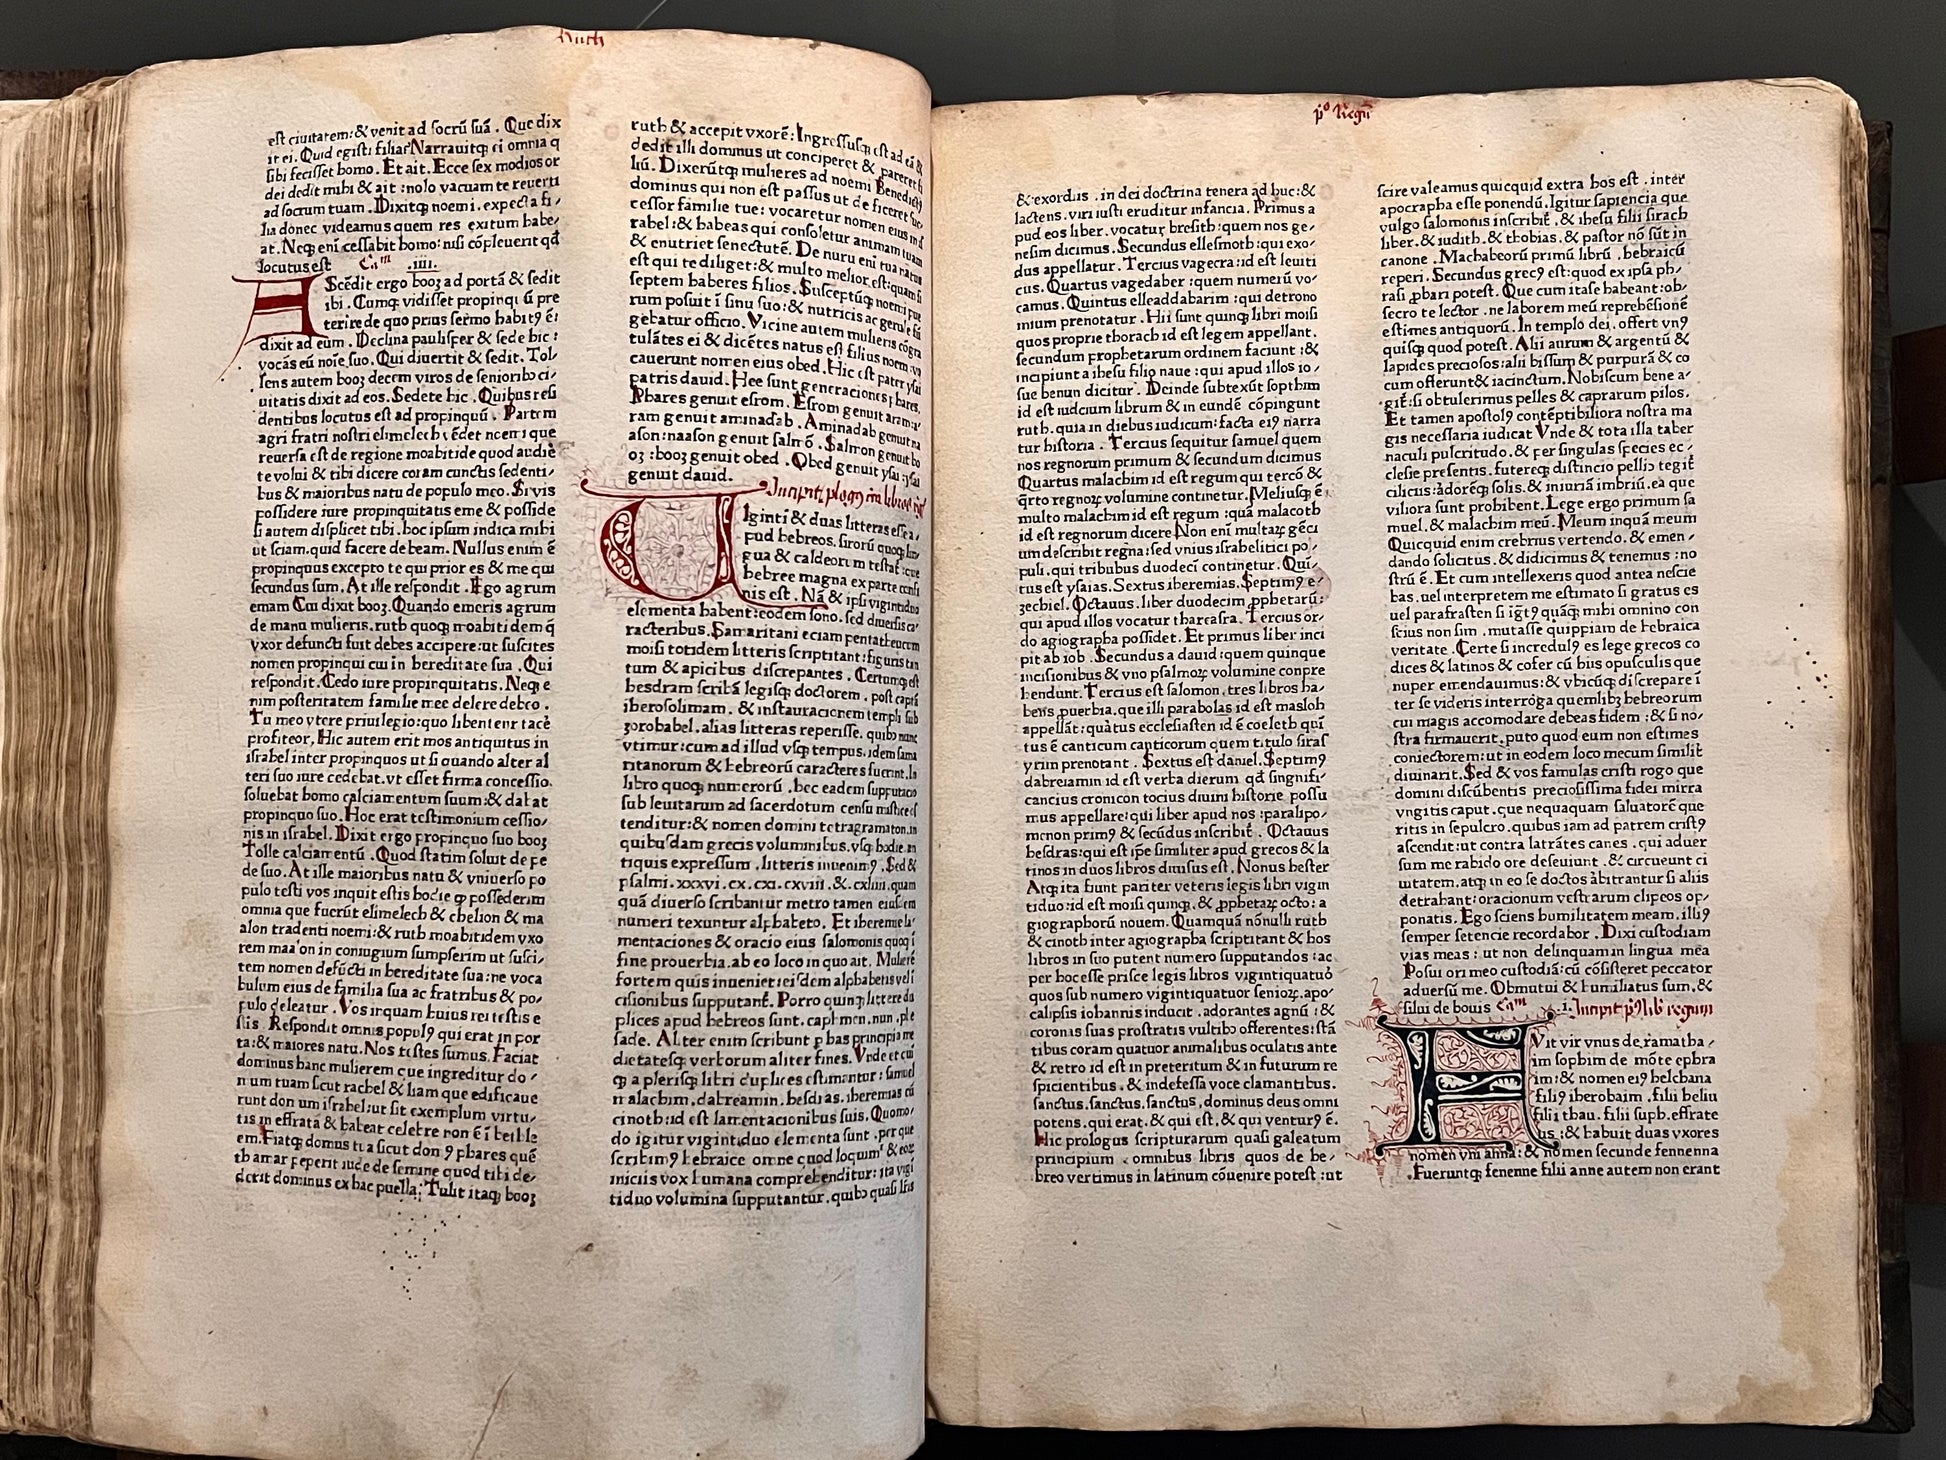 Ruth
est ciuitatem:& venit ad socrū suā . Que dix
it ei. Quid egisti filia? Narrauitqꝫ ei omnia q
sibi fecisset homo. Et ait. Ecce sex modios or
dei dedit mihi & ait :nolo vacuam te reuerti
ad socrum tuam . Dixitqꝫ noemi . expecta fi/
lia donec videamus quem res exitum habe/
at. Neqꝫ eni cessabit homo: nisi cōpleuerit qđ
locutus est Caᵐ .iiii.
AScēdit ergo booz ad portā & sedit
ibi . Cumqꝫ vidisset propinqu ū pre
terire de quo prius sermo habitꝰ ē:
dixit ad eum . Declina paulisper & sede hic :
vocās eū noīe suo. Qui diuertit & sedit. Tol/
lens autem booz decem viros de senioribꝰ ci/
uitatis dixit ad eos. Sedete hic . Quibus resi
dentibus locutus est ad propinquū . Partem
agri fratri nostri elimelech vēdet noemi que
reuersa est de regione moabitide quod audiē
te volui & tibi dicere coram cunctis sedenti/
bus & maioribus natu de populo meo. Si vis
possidere iure propinquitatis eme & posside
si autem displicet tibi . hoc ipsum indica mihi
ut sciam.quid facere debeam. Nullus enim ē
propinquus excepto te qui prior es & me qui
secundus sum. At ille respondit . Ego agrum
emam Cui dixit booz. Quando emeris agrum
de manu mulieris. ruth quoqꝫ moabitidem q̄
vxor defuncti fuit debes accipere:ut suscites
nomen propinqui cui in hereditate sua . Qui
respondit. Cedo iure propinquitatis. Neqꝫ e
nim posteritatem familie mee delere debeo .
Tu meo vtere priuilegio:quo libenter me carē
profiteor, Hic autem erit mos antiquitus in
israhel inter propinquos ut si quando alter al
teri suo iure cedebat. vt esset firma concessio.
soluebat homo calciamentum suum:& dabat
propinquo suo. Hoc erat testimonium cessio/
nis in israhel. Dixit ergo propinquo suo booz
Tolle calciamentū . Quod statim soluit de pe
de suo. At ille maioribus natu & vniuerso po
pulo testi vos inquit estis hodie ꝙ possederim
omnia que fuerūt elimelech & chelion & ma
alon tradenti noemi:& ruth moabitidem vxo
rem maa on in coniugium sumpserim ut susci/
tem nomen defūcti in hereditate sua: ne voca
bulum eius de familia sua ac fratribus & po/
pulo deleatur . Vos inquam huius rei testis e
stis . Respondit omnis populꝰ qui erat in por
ta:& maiores natu. Nos testes sumus. Faciat
dominus hanc mulierem que ingreditur do/
num tuam sicut rachel & liam que edificaue
runt don um israhel:ut sit exemplum virtu/
tis in effrata & habeat celebre non ē ī bethle
em. Fiatqꝫ domus tua sicut don ꝰ phares quē
thamar peperit iude de semine quod tibi de/
derit dominus ex hac puella: Tulit itaqꝫ booz
ruth & accepit vxorē: Ingressusqꝫ est ad eā &
dedit illi dominus ut conciperet & pareret fi
liū. Dixerūtqꝫ mulieres ad noemi Benedictꝰ
dominus qui non est passus ut deficeret suc/
cessor familie tue: vocaretur nomen eius in is
rahel :& habeas qui consoletur animam tuam
& enutriet senectutē. De nuru eni tua natus
est qui te diliget:& multo melior est:quam si
septem haberes filios . Susceptūqꝫ noemi pue
rum posuit ī sinu suo :& nutricis ac gerule fū
gebatur officio. Vicine autem mulieris cōgra
tulātes ei & dicētes natus est filius noemi :vo
cauerunt nomen eius obed. Hic est pater ysai
patris dauid. Hee sunt generaciones phares.
Phares genuit esrom. Esrom genuit aram:a/
ram genuit aminadab . Aminadab genuit na
ason:naason genuit salmō . Salmon genuit bo
oz :booz genuit obed . Obed genuit ysai :ysai
genuit dauid.
Incipit plogꝰ in libros regū
VIginti & duas litteras esse a/
pud hebreos. sirorū quoqꝫ lin/
gua & caldeorum testat̄ :que
hebree magna ex parte confi
nis est . Nā & ipsi vigintiduo
elementa habent:eodem sono. sed diuersis ca/
racteribus. Samaritani eciam pentatheucum
moisi totidem litteris scriptitant:figuris tan
tum & apicibus discrepantes . Certumqꝫ est
hesdram scribā legisqꝫ doctorem . post captā
iherosolimam . & instauracionem templi sub
zorobabel. alias litteras reperisse. quibꝰ nunc
vtimur:cum ad illud vsqꝫ tempus. idem sama
ritanorum & hebreorū caracteres fuerint. In
libro quoqꝫ numerorū . hec eadem supputacio
sub leuitarum ad sacerdotum censu mistice os
tenditur:& nomen domini tetragramaton.in
quibusdam grecis voluminibus. vsqꝫ hodie.an
tiquis expressum . litteris inuenimꝰ . Sed &
psalmi . xxxvi .cx. cxi. cxviii . & .cxliiii .quam
quā diuerso scribantur metro tamen eiusdem
numeri texuntur alphabeto. Et iheremie la/
mentaciones & oracio eius salomonis quoqꝫ ī
fine prouerbia. ab eo loco in quo ait. Mulierē
fortem quis inueniet: eisdem alphabetis vel ī
cisionibus supputant̄. Porro quinqꝫ littere du
plices apud hebreos sunt. caph.men. nun . phe
sade. Alter enim scribunt p has principia me
dietatesqꝫ verborum aliter fines. Vnde et cū
ꝙ a plerisqꝫ libri duplices estimantur : samuel
malachim. dabreamin. hesdras. iheremias cū
cinoth:id est lamentacionibus suis. Quomo/
do igitur vigintiduo elementa sunt . per que
scribimꝰ hebraice omne quod loquimʳ & eoꝝ
iniciis vox humana comprehenditur: ita vigī
tiduo volumina supputantur. quibꝰ quasi lr̄is
pº Regū
& exordiis . in dei doctrina tenera ad huc:&
lactens. viri iusti eruditur infancia. Primus a
pud eos liber. vocatur bresith: quem nos ge/
nesim dicimus. Secundus ellesmoth:qui exo/
dus appellatur. Tercius vagecra:id est leuiti
cus. Quartus vagedaber :quem numerū vo/
camus. Quintus elleaddabarim :qui detrono
mium prenotatur . Hii sunt quinqꝫ libri moisi
quos proprie thorach id est legem appellant.
secundum prophetarum ordinem faciunt :&
incipiunt a ihesu filio naue : qui apud illos io/
sue benun dicitur . Deinde subtexūt sopthim
id est iudicium librum & in eundē cōpingunt
ruth. quia in diebus iudicum: facta eiꝰ narra
tur historia . Tercius sequitur samuel quem
nos regnorum primum & secundum dicimus
Quartus malachim id est regum qui tercō &
q̄rto regnoꝝ volumine continetur. Meliusqꝫ ē
multo malachim id est regum :quā malacoth
id est regnorum dicere Non eni multaꝝ gēci
um describit regna: sed vnius israhelitici po/
puli. qui tribubus duodecī continetur. Quī/
tus est ysaias. Sextus iheremias. Septimꝰ e/
zechiel. Octauus . liber duodecim pphetarū:
qui apud illos vocatur thareasra. Tercius or/
do agiographa possidet. Et primus liber inci
pit ab iob . Secundus a dauid:quem quinque
incisionibus & vno psalmoꝝ volumine conpre
hendunt. Tercius est salomon . tres libros ha/
bens puerbia. que illi parabolas id est masloh
appellāt: quātus ecclesiasten id ē coeleth quī
tus ē canticum canticorum quem titulo siras
yrim prenotant . Sextus est daniel. Septimꝰ
dabreiamin id est verba dierum qđ singnifi/
cancius cronicon tocius diuini historie possu
mus appellare: qui liber apud nos :paralipo/
menon primꝰ & secūdus inscribit̄ . Octauus
hesdras:qui est ip̄e similiter apud grecos & la
tinos in duos libros diuisus est. Nonus hester
Atqꝫ ita fiunt pariter veteris legis libri vigin
tiduo:id est moisi quinqꝫ. & pphetaꝝ octo: a
giographorū nouem. Quamquā nōnulli ruth
& cinoth inter agiographa scriptitant & hos
libros in suo putent numero supputandos :ac
per hoc esse prisce legis libros vigintiquatuor
quos sub numero vigintiquatuor senioꝝ. apo/
calipsis iohannis inducit . adorantes agnū :&
coronas suas prostratis vultibꝰ offerentes:stā
tibus coram quatuor animalibus oculatis ante
& retro id est in preteritum & in futurum re
spicientibus . & indefessa voce clamantibus.
sanctus. sanctus. sanctus, dominus deus omni
potens. qui erat. & qui est . & qui venturꝰ ē.
Hic prologus scripturarum quasi galeatum
principium omnibus libris quos de he/
breo vertimus in latinum cōuenire potest :ut
scire valeamus quicquid extra hos est . inter
apocrapha esse ponendū. Igitur sapiencia que
vulgo salomonis inscribit̄. & ihesu filii sirach
liber. & iudith. & thobias. & pastor nō sūt in
canone . Machabeorū primū librū . hebraicū
reperi. Secundus grecꝰ est:quod ex ipsa ph/
rasi pbari potest. Que cum itase habeant:ob/
secro te lector . ne laborem meū reprehēsionē
estimes antiquorū. In templo dei . offert vnꝰ
quisqꝫ quod potest. Alii aurum & argentū &
lapides preciosos:alii bissum & purpurā & co
cum offerunt& iacinctum. Nobiscum bene a/
git̄:si obtulerimus pelles & caprarum pilos.
Et tamen apostolꝰ contēptibiliora nostra ma
gis necessaria iudicat Vnde & tota illa taber
naculi pulcritudo. & per singulas species ec/
clesie presentis. futureqꝫ distincio pellib tegit̄
ciliciis :ādorēqꝫ solis. & iniuriā imbriū. ea que
viliora sunt prohibent. Lege ergo primum sa
muel. & malachim meū. Meum inquā meum
Quicquid enim crebrius vertendo. & emen/
dando solicitus. & didicimus & tenemus :no
strū ē. Et cum intellexeris quod antea nescie
bas. uel interpretem me estimato si gratus es
uel parafrasten si īgr̄tꝰ quāqꝫ mihi omnino con
scius non sim . mutasse quippiam de hebraica
veritate . Certe si incredulꝰ es lege grecos co
dices & latinos & cōfer cū hiis opusculis que
nuper emendauimus:& vbicūqꝫ discrepare ī
ter se videris interrōga quemlibꝫ hebreorum
cui magis accomodare debeas fidem :& si no/
stra firmauerit. puto quod eum non estimes
coniectorem:ut in eodem loco mecum similit̄
diuinarit. Sed & vos famulas cristi rogo que
domini discūbentis preciosissima fides mirra
vngitis caput .que nequaquam saluatorē que
ritis in sepulcro. quibus iam ad patrem cristꝰ
ascendit:ut contra latrātes canes . qui aduer
sum me rabido ore deseuiunt . & circueunt ci
uitatem. atqꝫ in eo se doctos ābitrantur si aliis
detrahant: oracionum vestrarum clipeos op/
ponatis. Ego sciens humilitatem meam. illiꝰ
semper setencie recordabor . Dixi custodiam
vias meas : ut non delinquam in lingua mea
Posui ori meo custodiā:cū cōsisteret peccator
aduersū me. Obmutui & humiliatus sum. &
silui de bonis Caᵐ .i. Incipit pꝰ lib regum
FVit vir vnus de ramatha/
im sophim de mōte ephra
im:& nomen eiꝰ helchana
filiꝰ iherobaim . filii heliu
filii thau. filii suph. effrate
us :& habuit duas vxores
nomen vni anna: & nomen secunde fennenna
.Fueruntqꝫ fenenne filii anne autem non erant